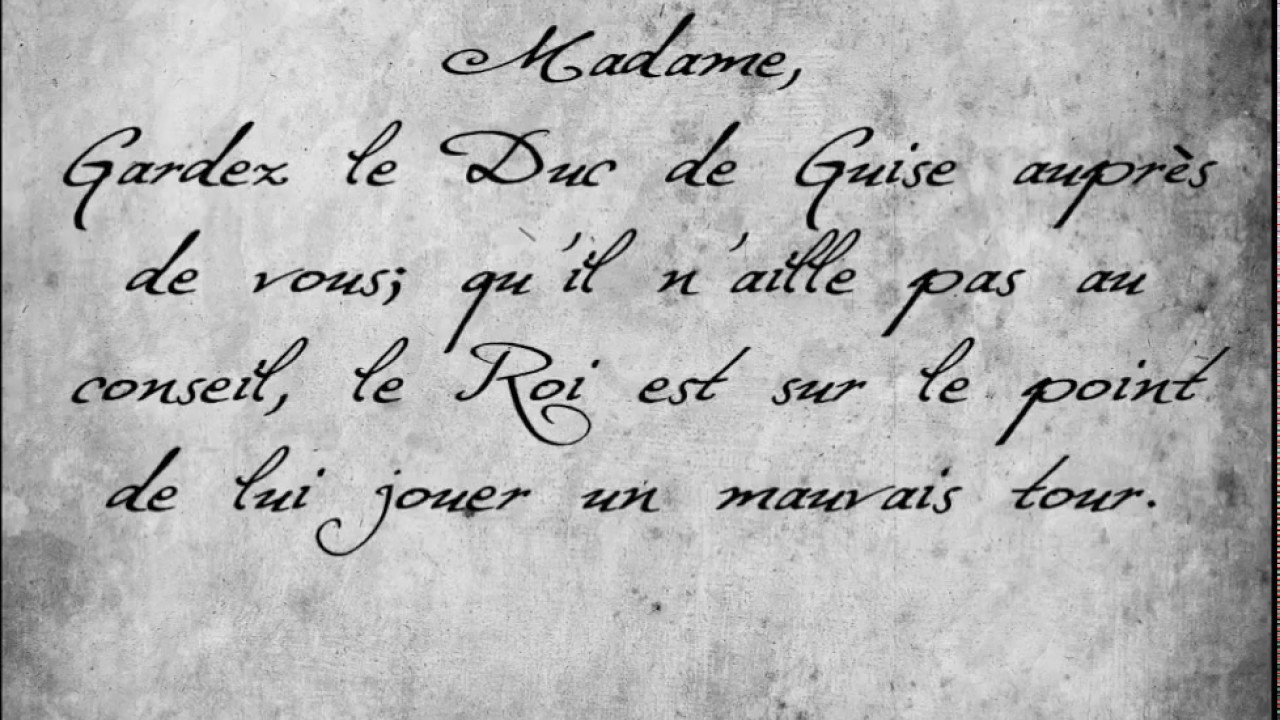 Madame,
Gardez le Duc de Guise auprès
de vous; qu'il n'aille pas au
conseil, le Roi est sur le point
de lui jouer un mauvais tour.